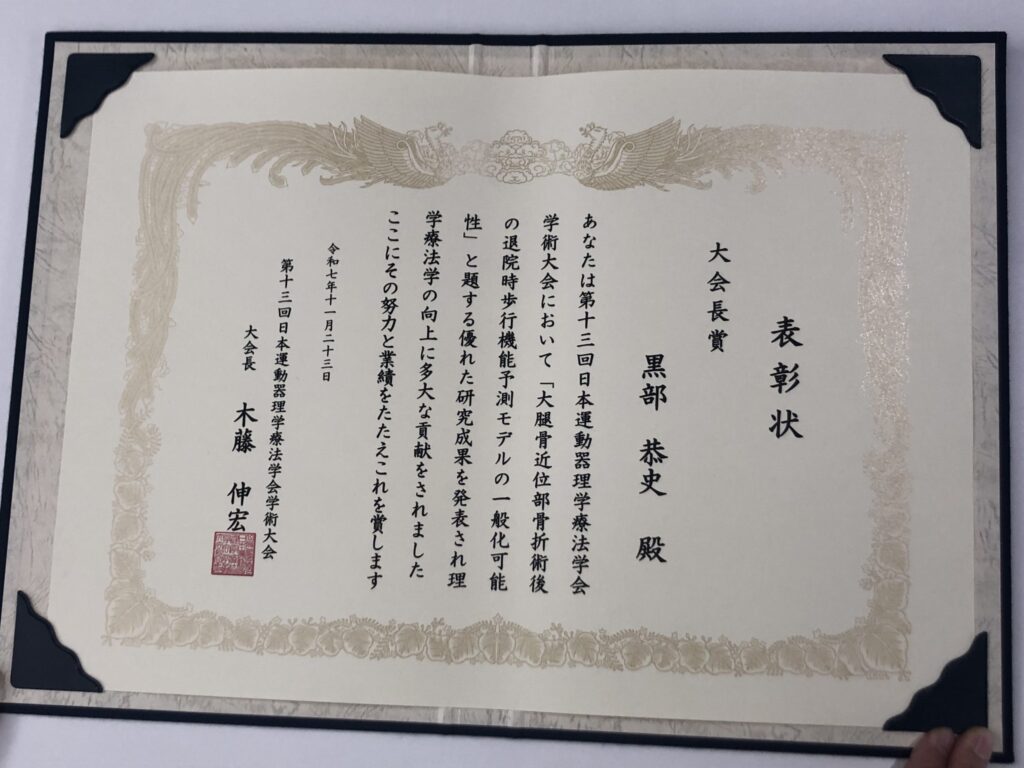 表彰状
大会長賞
黒部 恭史 殿
あなたは第十三回日本運動器理学療法学会
学術大会において「大腿骨近位部骨折術後
の退院時歩行機能予測モデルの一般化可能
性」と題する優れた研究成果を発表され理
学療法学の向上に多大な貢献をされました
ここにその努力と業績をたたえこれを賞します
令和七年十一月二十三日
第十三回日本運動器理学療法学会学術大会
大会長 木藤 伸宏